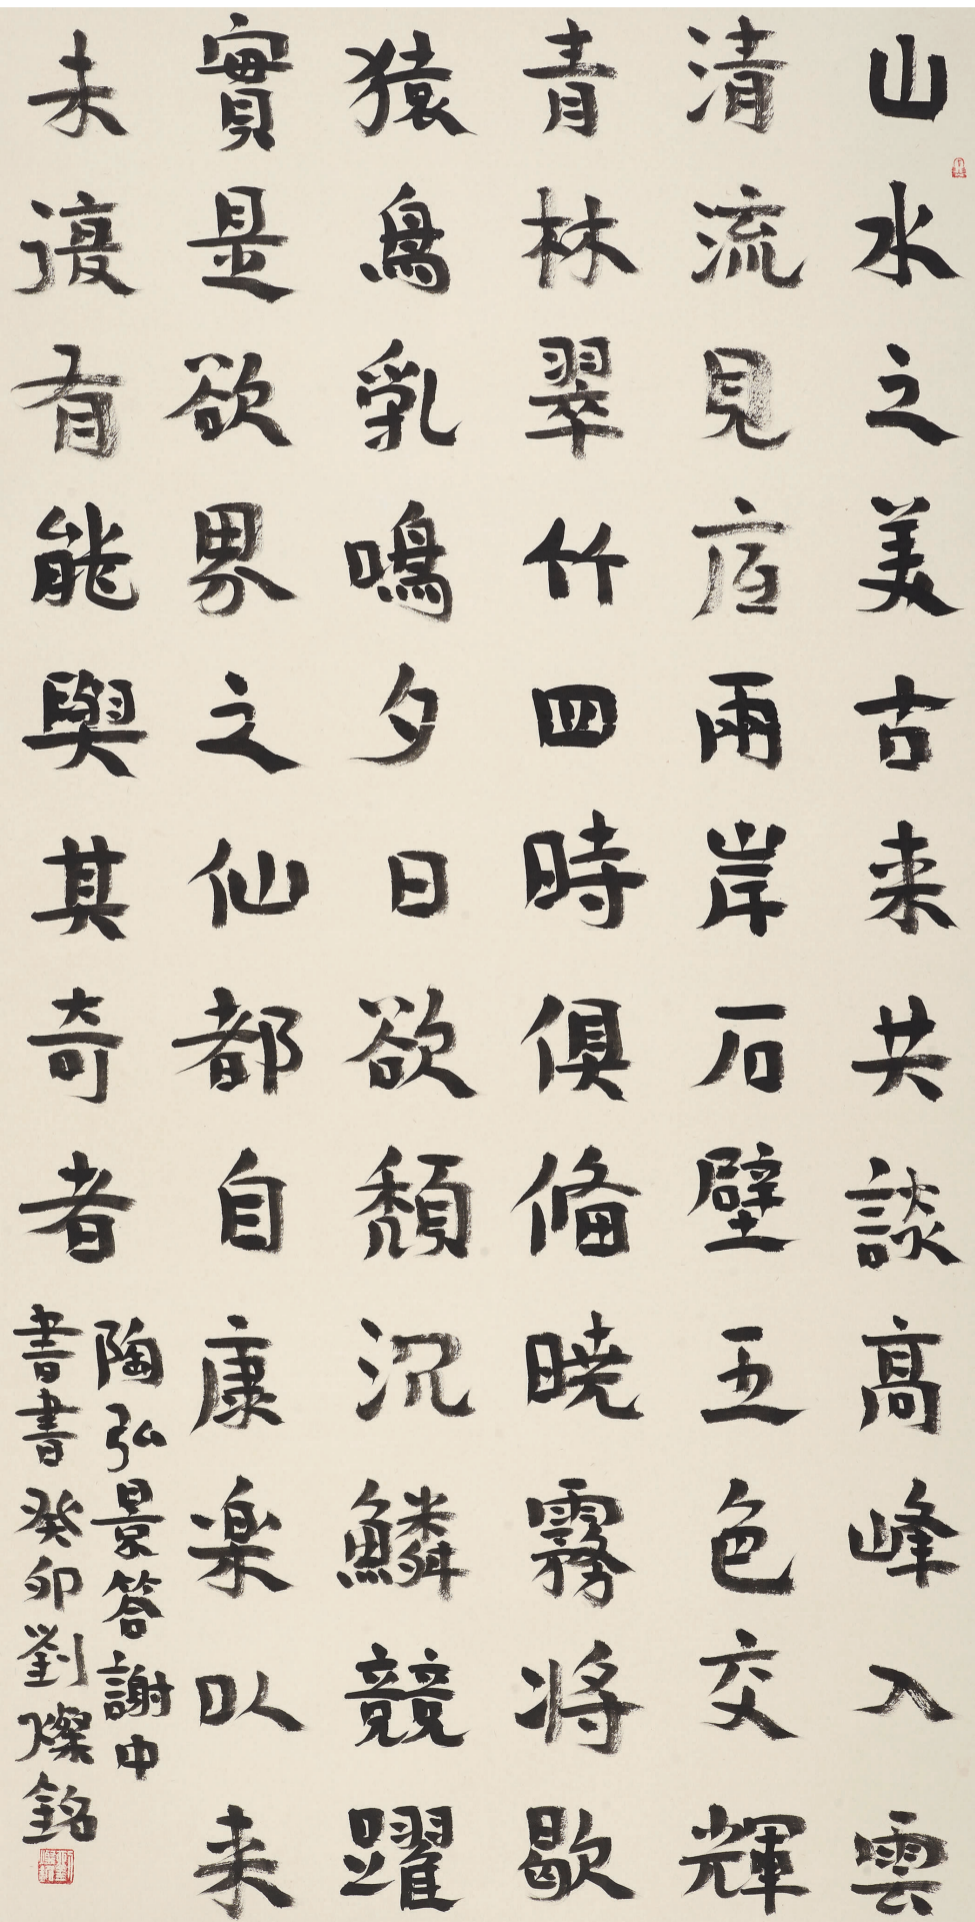 山水之美古来共談高峰入雲
清流見底兩岸石壁五色交輝
青林翠竹四時俱備曉霧將歇
猿鳥亂鳴夕日欲頹沉鱗競躍
實是欲界之仙都自康樂以来
未復有能與其奇者
陶弘景答謝中
書書癸卯劉燦銘